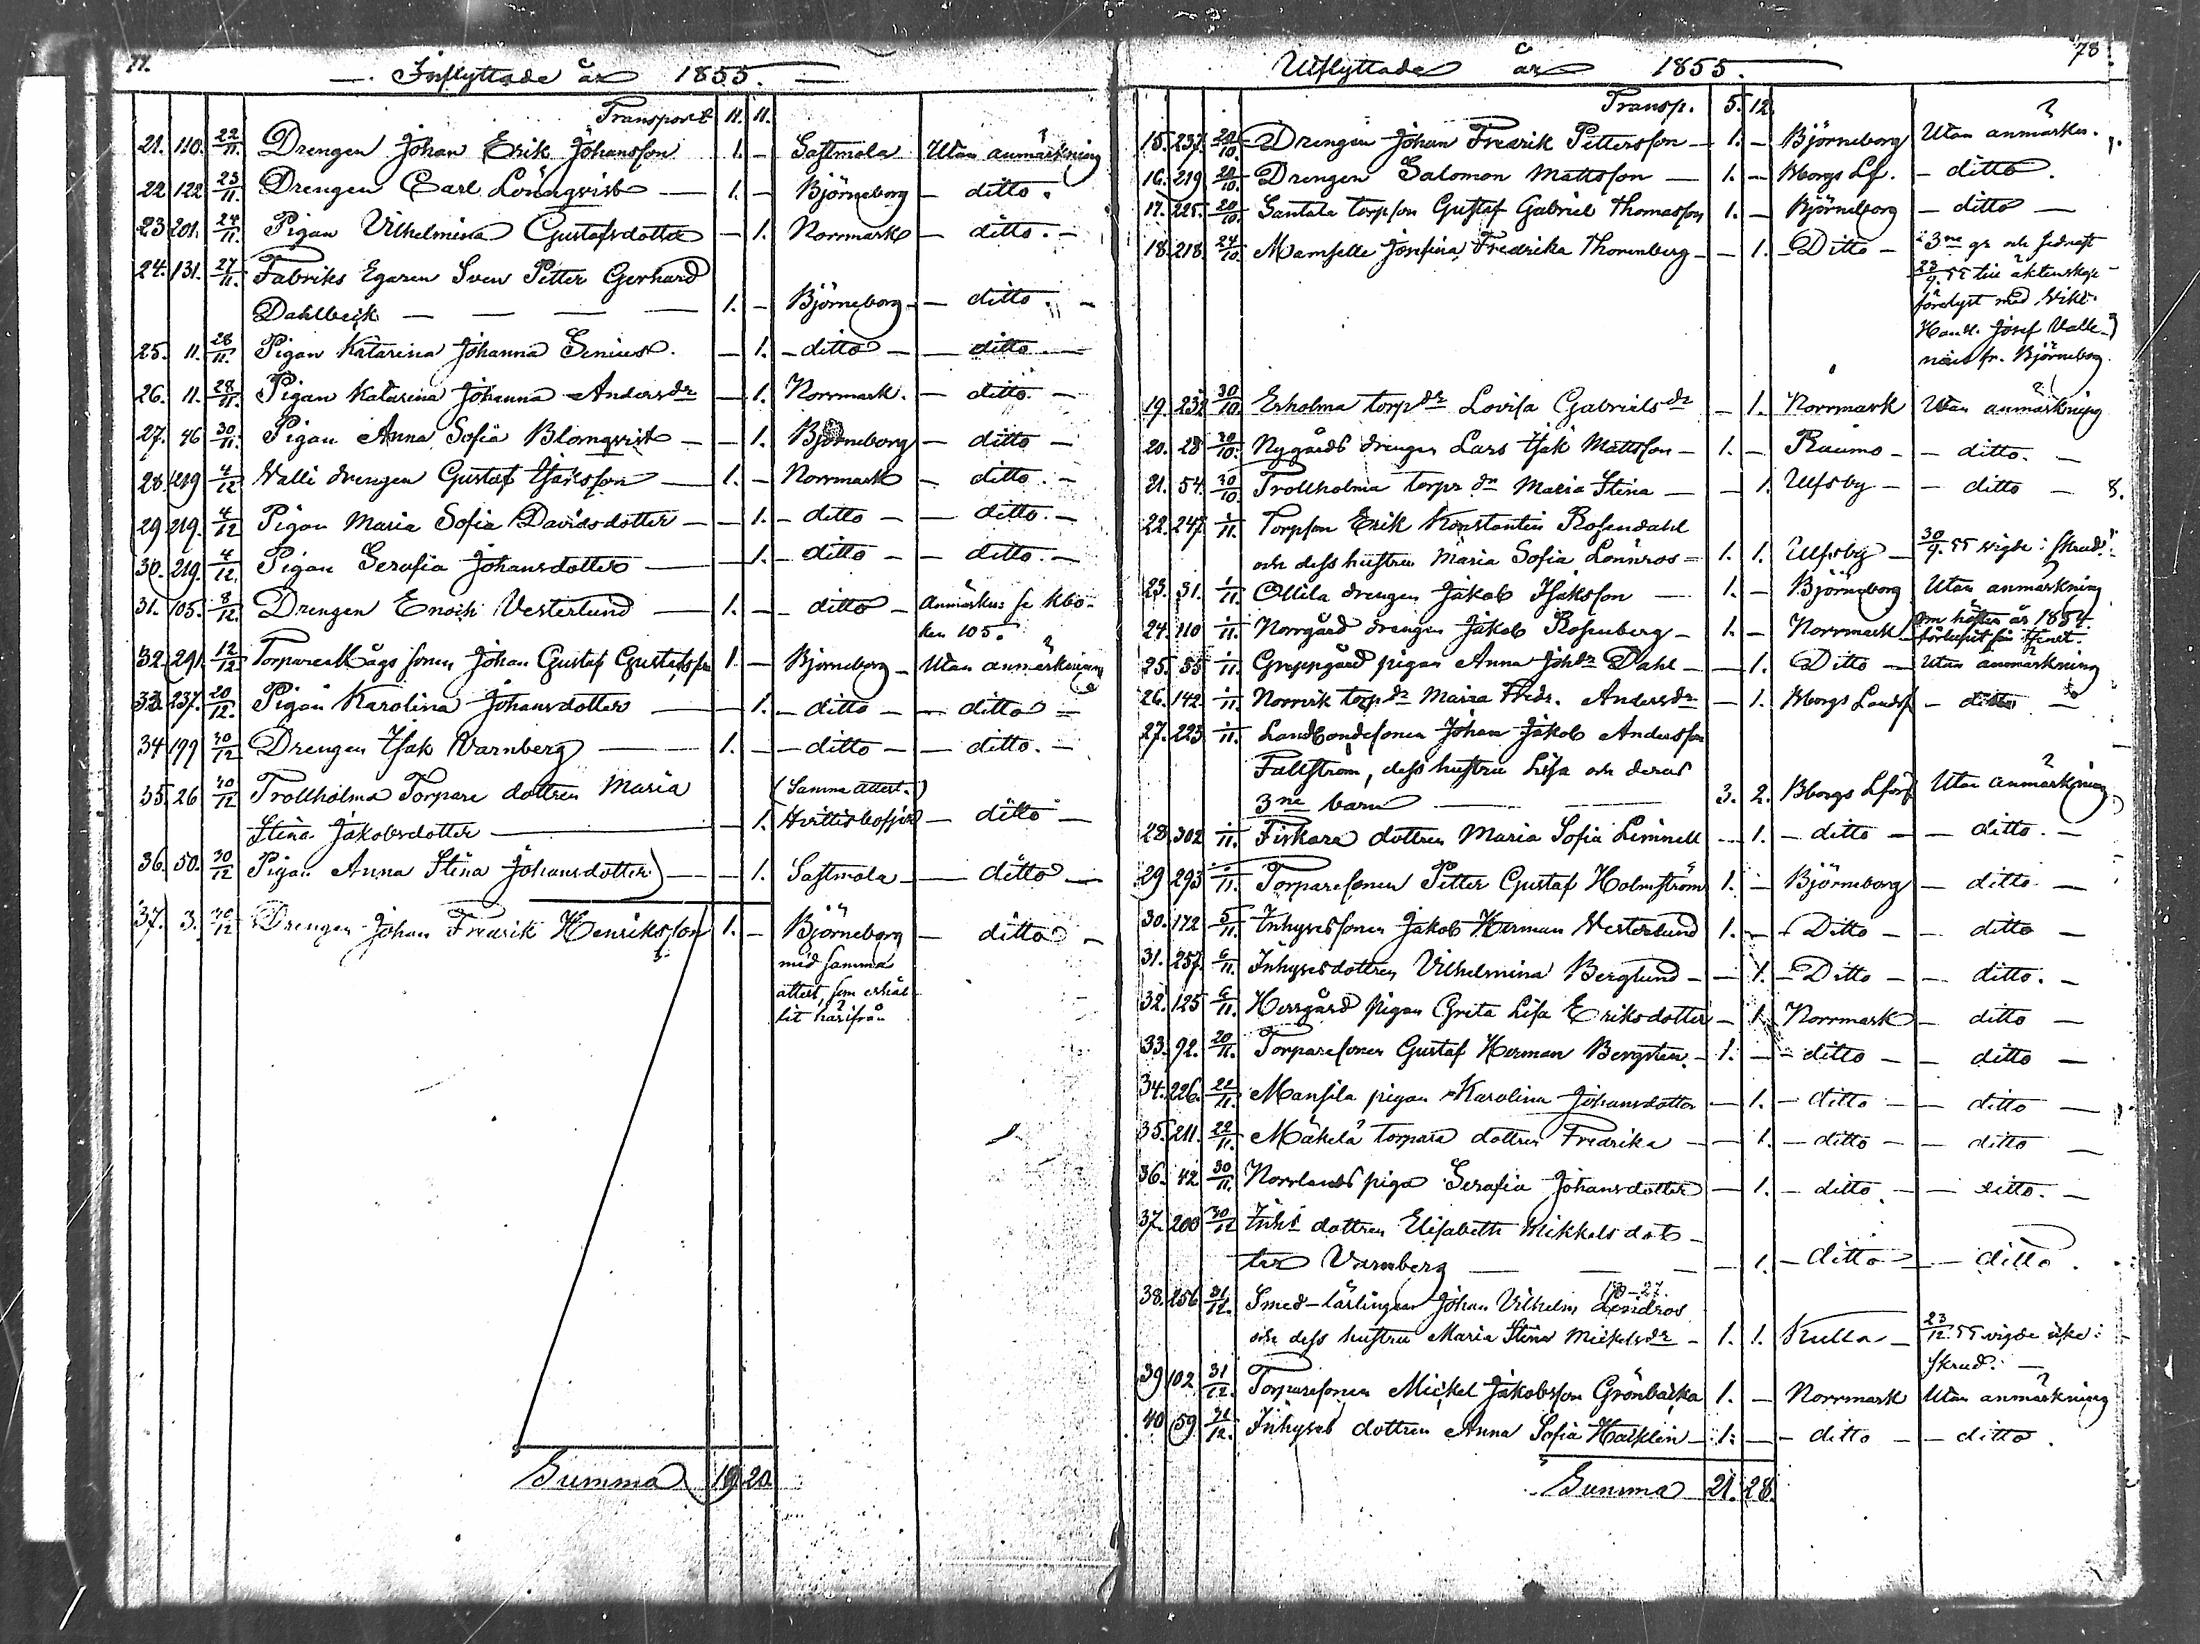 77.
Inflyttade år 1855.
Transport 11. 11.
21. 110. 22/11. Drengen Johan Erik Johansson 1. - Sastmola Utan anmärkning
22 122 23/11. Drengen Carl Lönnqvist 1. - Björneborg - ditto.
23 201. 24/11. Pigan Vilhelmina Gustafsdotter - 1. Norrmark - ditto. -
24. 131. 27/11. Fabriks Egaren Sven Petter Gerhard
Dahlbeck 1. - Björneborg - ditto. -
25. 11. 28/11. Pigan Katarina Johanna Senius. - 1. - ditto - - ditto. -
26. 11. 28/11. Pigan Katarina Johanna Andersdr - 1. Norrmark. - ditto. -
27. 46 30/11. Pigan Anna Sofia Blomqvist - - 1. Björneborg - ditto -
28. 219 4/12 Valli drengen Gustaf Isaksson 1. - Norrmark - ditto. -
29 219. 4/12 Pigan Maria Sofia Davidsdotter - - 1. - ditto - - ditto. -
30. 219. 4/12. Pigan Serafia Johansdotter - 1. - ditto - - ditto. -
31. 105. 8/12. Drengen Enoch Vesterlund 1. - - ditto - Anmärkn: se kbo-
ken 105.
32. 291. 12/12 Torpare Mågs sonen Johan Gustaf Gustafsson 1. - Björneborg - Utan anmärkning
33. 237. 20/12. Pigan Karolina Johansdotter - 1. - ditto - - ditto -
34 199 30/12 Drengen Isak Varnberg 1. - - ditto - - ditto. -
35. 26 30/12 Trollholma Torpare dottren Maria (Samma attest.)
Stina Jakobsdotter - 1. Hvittisbofjärd - ditto -
36. 50. 30/12 Pigan Anna Stina Johansdotter) - 1. Sastmola - - ditto -
37. 3. 30/12 Drengen Johan Fredrik Henriksson 1. - Björneborg - ditto -
med samma
attest, som erhål-
lit härifrån
Summa 19. 20.
78
Utflyttade år 1855.
Transp. 5. 12.
15. 237. 20/10. Drengen Johan Fredrik Pettersson - 1. - Björneborg Utan anmärkn.
16. 219 20/10. Drengen Salomon Mattsson - 1. - Bborgs Lf. - ditto.
17. 225. 20/10. Santala torpson Gustaf Gabriel Thomasson 1. - Björneborg - ditto -
18. 218 24/10 Mamselle Josefina Fredrika Thorenberg - - 1. Ditto - i 3ne gr och
23/9. 55 till äktenskap
förelyst med
Handl. Josef Valle-
nius fr. Björneborg.
19. 232 30/10 Erholma torpdr Lovisa Gabrielsdr - 1. Norrmark Utan anmärkning
20. 28 30/10. Nygårds drengen Lars Isak Mattsson - 1. - Raumo - - ditto. -
21. 54. 30/10 Trollholma torpr dn Maria Stina - - 1. Ulfsby - - ditto -
22. 247. 1/11. Torpson Erik Konstantin Rosendahl
och dess hustru Maria Sofia Lönnros - 1. 1. Ulfsby - 30/9. 55 vigde i skrud.
23. 31. 1/11. Ollila drengen Jakob Isaksson - 1. - Björneborg Utan anmärkning
24. 110 1/11. Norrgård drengen Jakob Rosenberg - 1. - Norrmark Om hösten år 1854.
förlupit sin tjenst.
25. 35 1/11. Greppgård pigan Anna Johdr Dahl - - 1. Ditto - Utan anmärkning
26. 142 1/11. Norrvik torpdr Maria Fredr. Andersdr - 1. Bborgs Landsf - ditto -
27. 223 1/11. Landbondesonen Johan Jakob Andersson
Fallström, dess hustru Lisa och deras
3ne barn 3. 2. Bborgs Lförs Utan anmärkning
28. 302 1/11 Fiskare dottren Maria Sofia Limnell - 1. - ditto - - ditto. -
29 293 1/11. Torparesonen Petter Gustaf Holmström 1. - Björneborg - ditto -
30. 172 5/11. Inhysessonen Jakob Herman Vesterlund 1. - - Ditto - - ditto -
31. 257. 6/11. Inhysesdottren Vilhelmina Berglund - - 1. - Ditto - - ditto. -
32. 125 6/11. Herrgård pigan Greta Lisa Eriksdotter - 1. Norrmark - ditto -
33. 92. 20/11. Torparesonen Gustaf Herman Bergsten - 1. - - ditto - - ditto -
34. 226. 22/11. Mansila pigan Karolina Johansdotter - 1. - ditto - - ditto -
35. 211. 22/11. Mäkelä torpare dottren Fredrika - - 1. - ditto - - ditto -
36. 42 30/11. Norrlands piga Serafia Johansdotter - 1. - ditto. - - ditto. -
37. 200 30/12 Inhs dottren Elisabeth Mikkelsdot-
ter Varnberg - 1. - ditto - - ditto.
38. 256 31/12. Smed-lärlingen Johan Vilhelm Lindros
och dess hustru Maria Stina Mickelsdr - 1. 1. Kulla - 23/12. 55 vigde
skrud. -
39 102 31/12. Torparesonen Mickel Jakobsson Grönbacka 1. - Norrmark Utan anmärkning
40 59. 31/12. Inhyses dottren Anna Sofia Hacklin - 1. - - ditto - - ditto.
Summa 21. 28.